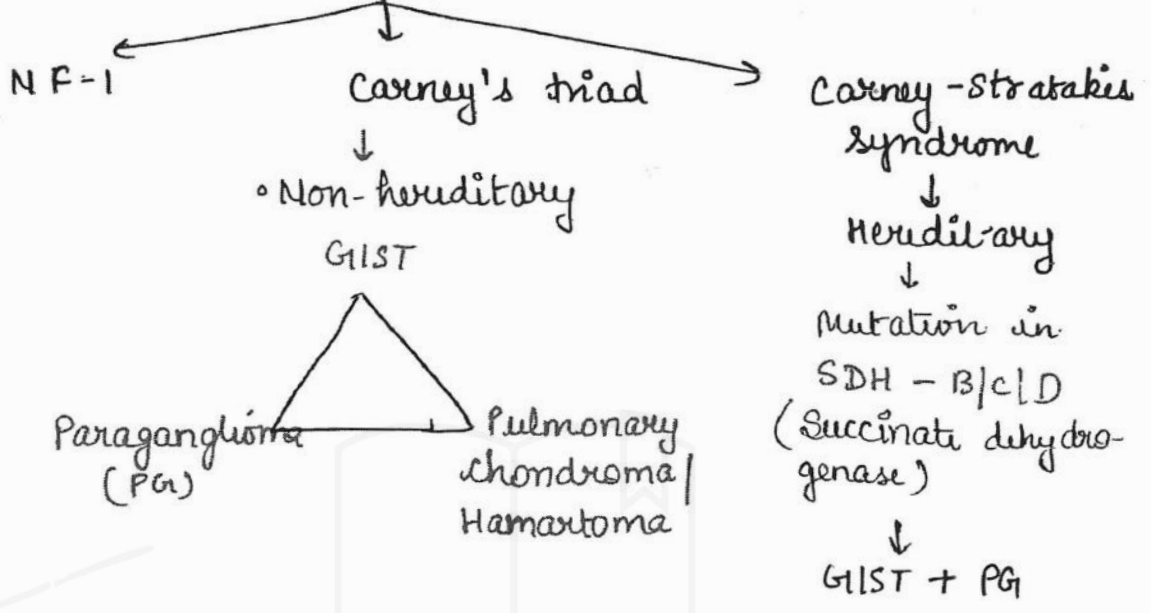 NF-1
Carney's triad
• Non-hereditary
GIST
Paraganglioma
(PG)
Pulmonary
chondroma/
Hamartoma
Carney-Stratakis
syndrome
Hereditary
Mutation in
SDH - B/C/D
(Succinate dehydro-
genase)
GIST + PG